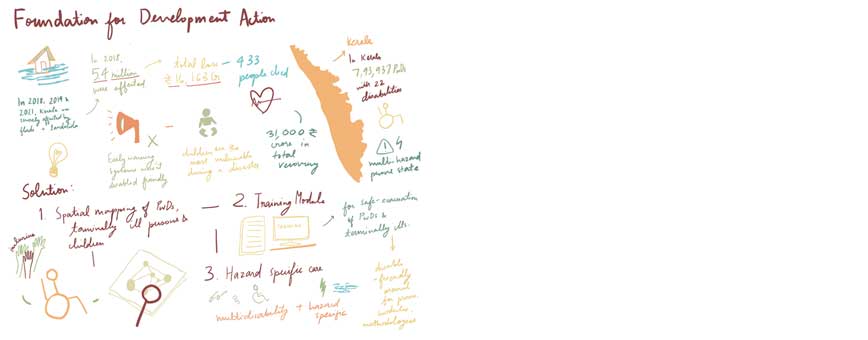 Foundation for Development Action
In 2018,
54 million
were affected
total loss
₹ 16,163 Cr
433
people died
Kerala
In Kerala
7,93,937 PwDs
with 22
disabilities
In 2018, 2019 &
2021, Kerala was
severely affected by
floods + landslides
Early warning
systems weren't
disabled friendly
children are the
most vulnerable
during a disaster
31,000 ₹
crore in
total
recovery
multi-hazard
prone state
Solution:
1. Spatial mapping of PwDs,
terminally ill persons &
children
2. Training Module
TRAINING
for safe-evacuation
of PwDs &
terminally ills.
3. Hazard specific care
multidisability + hazard
specific
disable
-friendly
manual
for
modules,
methodologies